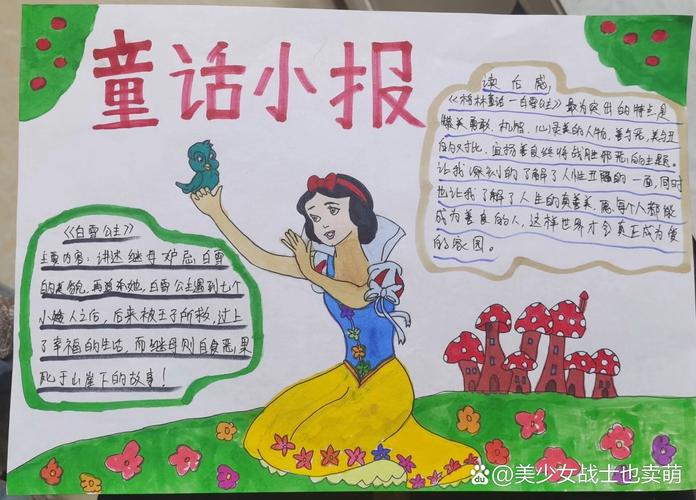 童话小报
读后感
《格林童话一白雪公主》最为突出的特点是
赞美勇敢、机智、心灵美的人物,善与恶,美与丑
的对比,宣扬善良终将战胜邪恶的主题。
让我深刻的了解了人性丑陋的一面,同时
也让我了解了人生的真善美,愿每个人都做
成为善良的人,这样世界才会真正成为爱
的家园。
《白雪公主》
主要内容:讲述继母妒忌白雪
的美貌,再追杀她,白雪公主遇到七个
小矮人之后,后来被王子所救,过上
了幸福的生活,而继母则自食恶果
死于山崖下的故事!
@美少女战士也卖萌